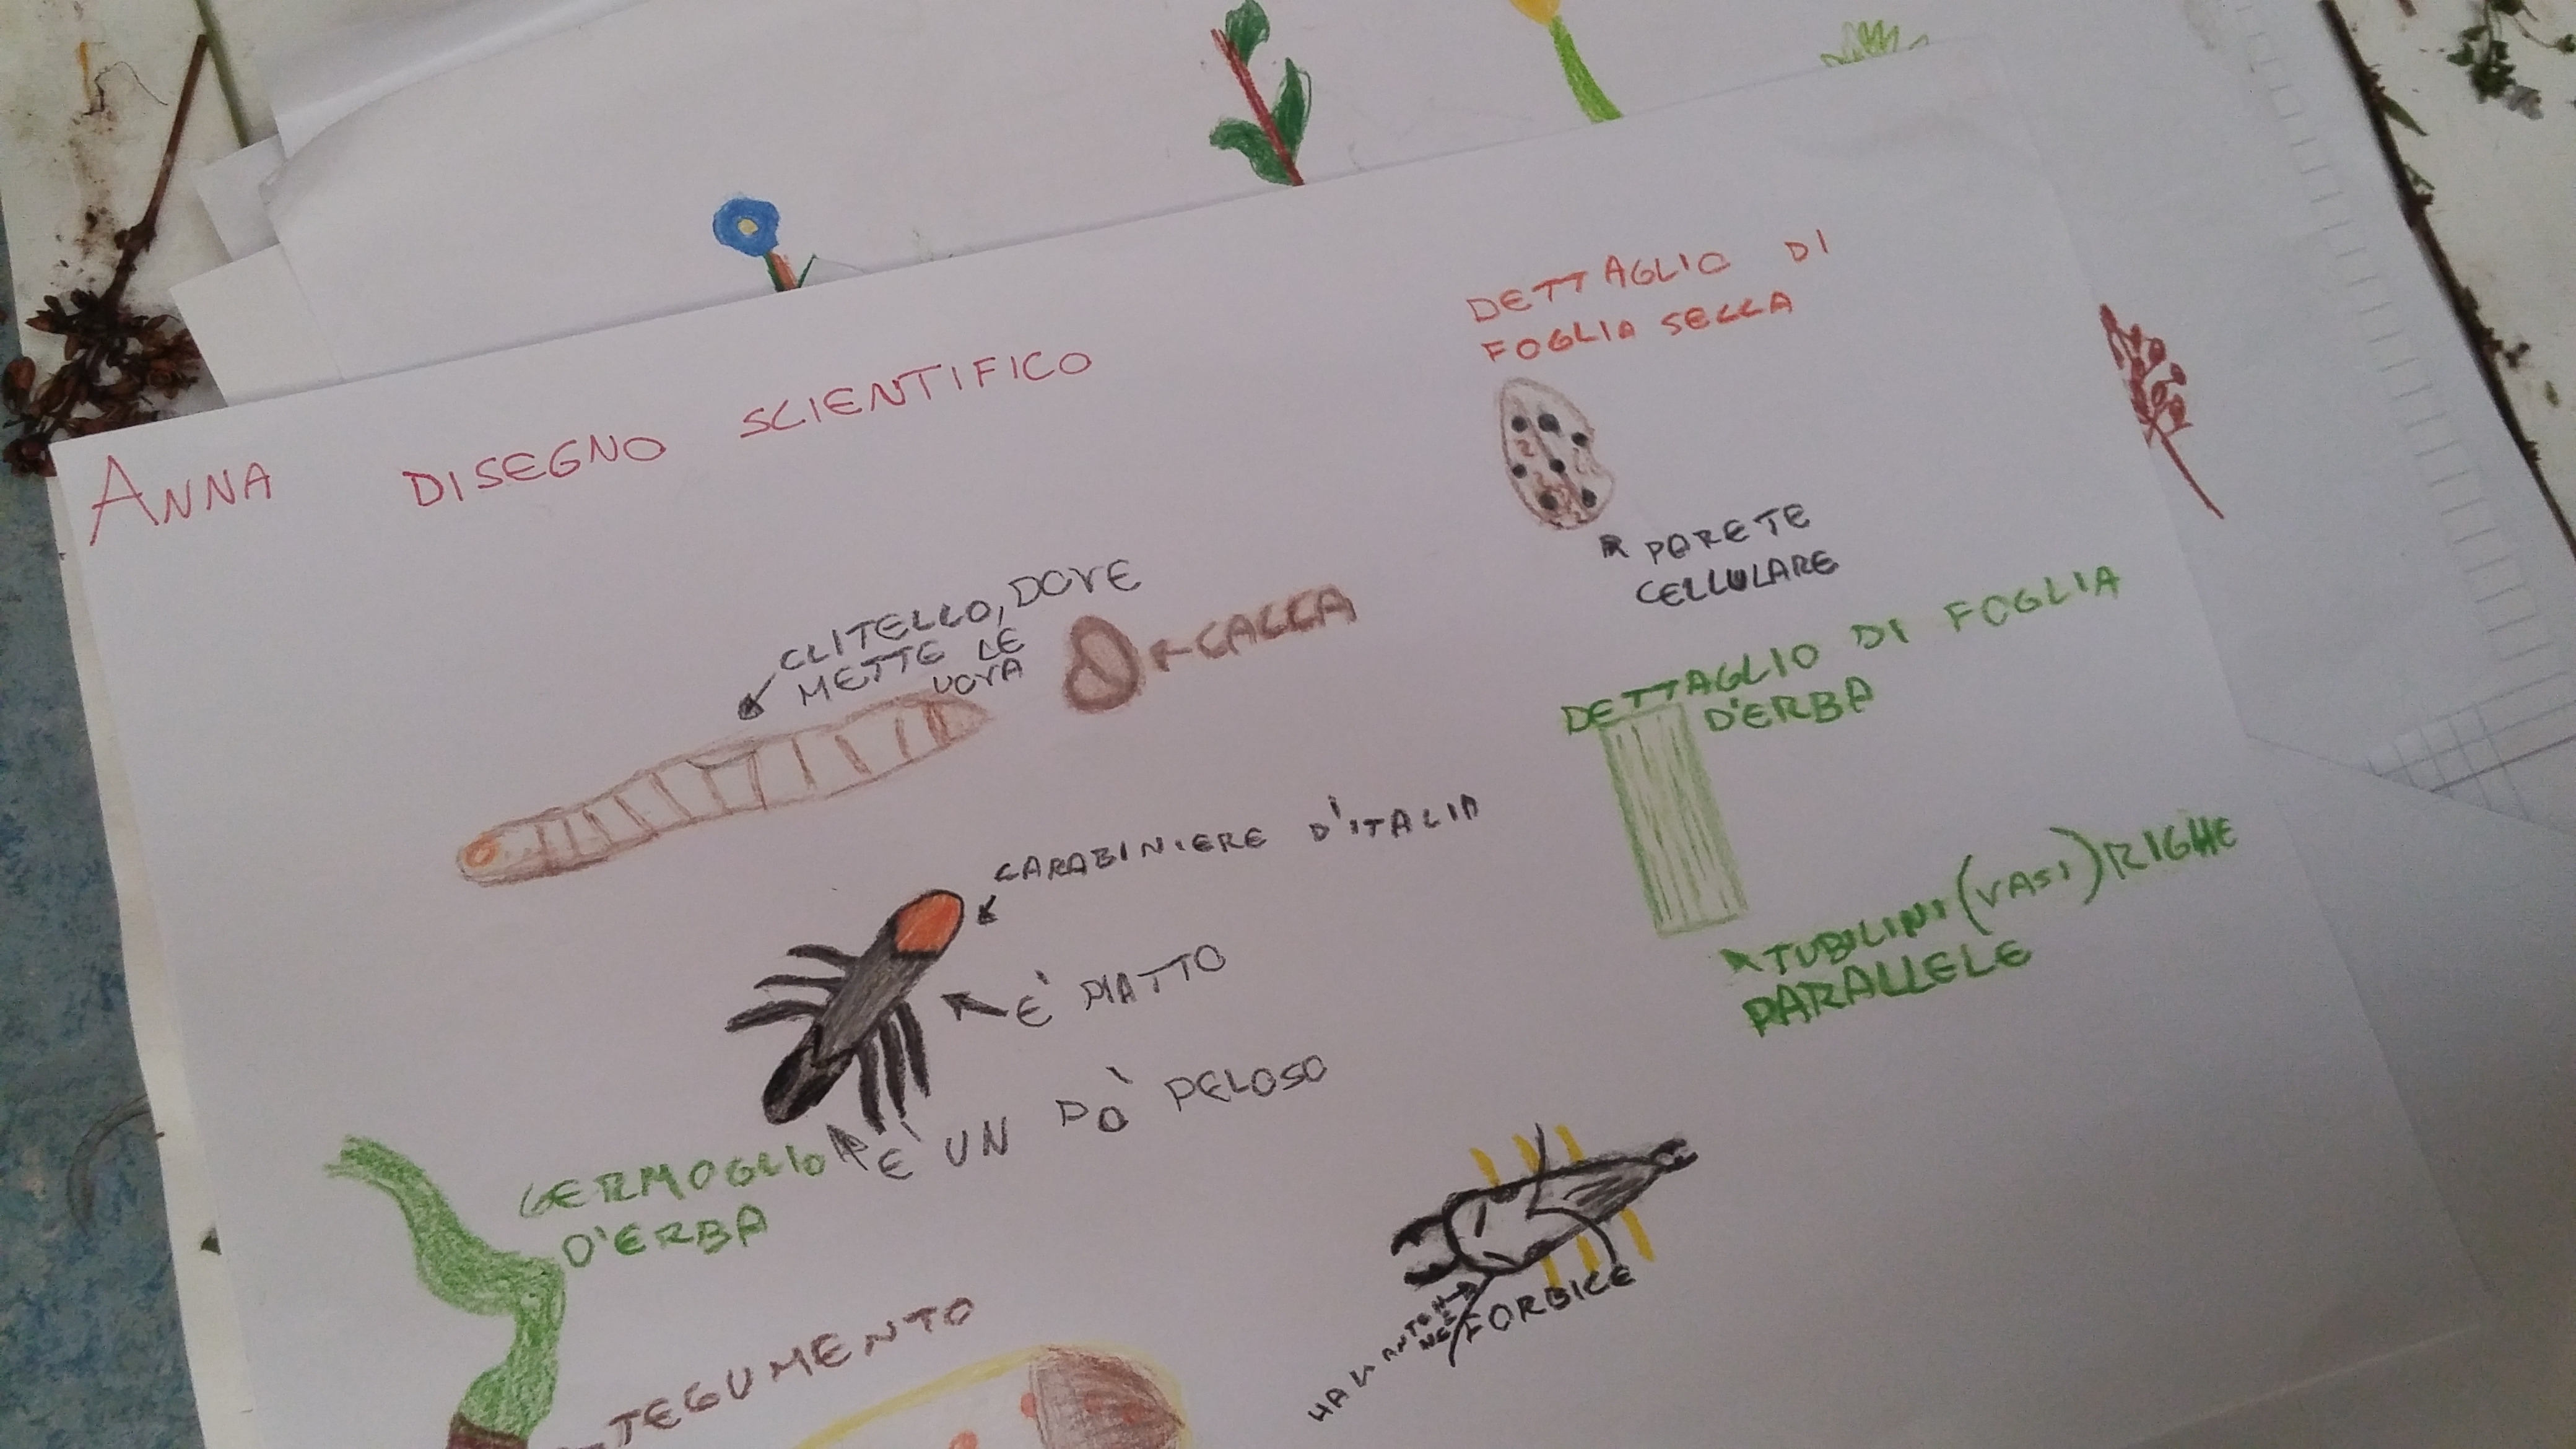 ANNA DISEGNO SCIENTIFICO
DETTAGLIO DI
FOGLIA SECCA
PARETE
CELLULARE
CLITELLO, DOVE
METTE LE
UOVA
CACCA
DETTAGLIO DI FOGLIA
D'ERBA
TUBILINI (VASI) RIGHE
PARALLELE
CARABINIERE D'ITALIA
E' PIATTO
E' UN PO' PELOSO
GERMOGLIO
D'ERBA
FORBICE
ANTEN
NE
TEGUMENTO